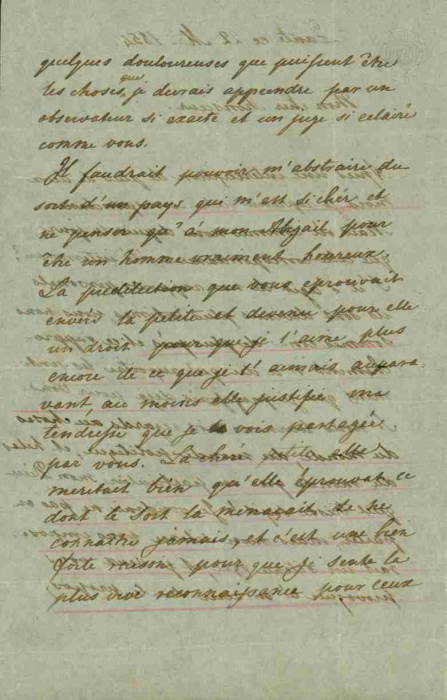 quelques douloureuses que puissent être
les choses que je devrais apprendre par un
observateur si exacte et un juge si eclairé
comme vous.
Il faudrait pouvoir m'abstraire du
sort d'un pays qui m'est si chér et
ne penser qu'à mon pour
être un homme vraiment heureux.
La préditection que vous éprouvait
envers la petite et devenu pour elle
un droit pour que je l'aime plus
encore de ce que je l'aimais aupara
vant, au moins elle justifie ma
tendresse que je vois partagée
par vous. La chere petite elle
meritait bien qu'elle éprouvat ce
dont le sort la menaçait de ne
connaître jamais, et c'est une bien
forte raison pour que je sente la
plus vive reconnaissance pour ceux